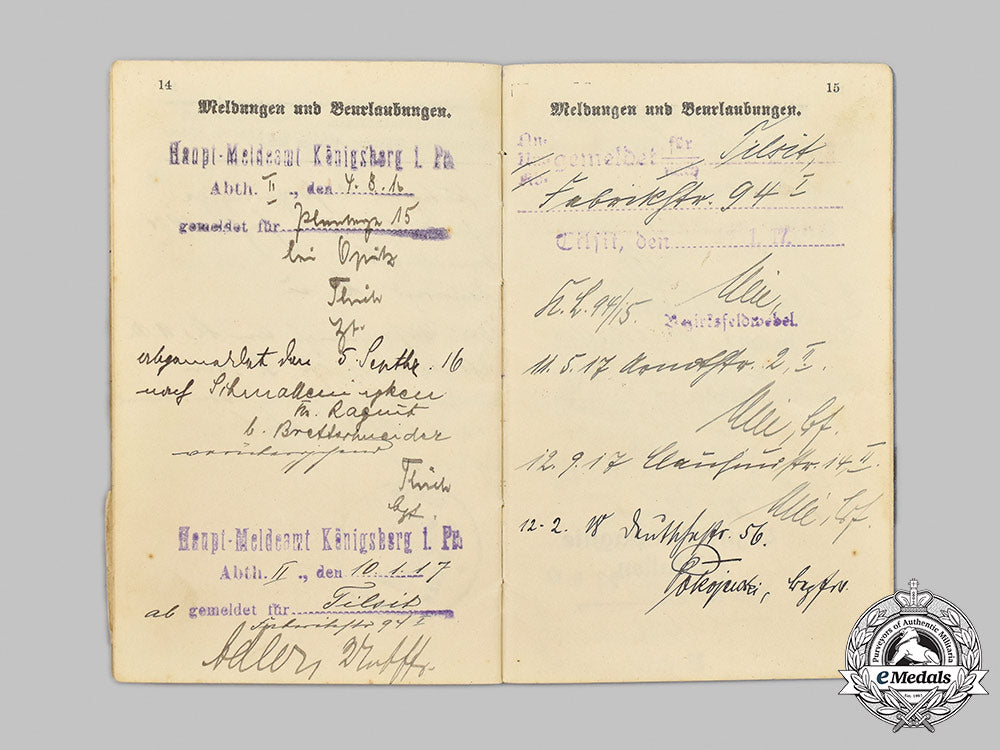 14
Meldungen und Beurlaubungen.
Haupt-Meldeamt Königsberg i. Pr.
Abth. II, den 4.8.16
gemeldet für Plantage 15
bei Opitz
den 5. Septbr. 16
nach Schmalleningken
Kr. Ragnit
b. Brettschneider
vorübergehend
Haupt-Meldeamt Königsberg i. Pr.
Abth. II, den 10.1.17
ab gemeldet für Tilsit
Fabrikstr 94 I
Adler,
15
Meldungen und Beurlaubungen.
gemeldet für Tilsit
Fabrikstr. 94 I
Tilsit, den 1. 17.
K. L. 94/15.
Bezirksfeldwebel.
11.5.17 Arndtstr. 2, I.
12.9.17 14 II.
12.2.18 Deutschestr. 56.
Purveyors of Authentic Militaria
eMedals